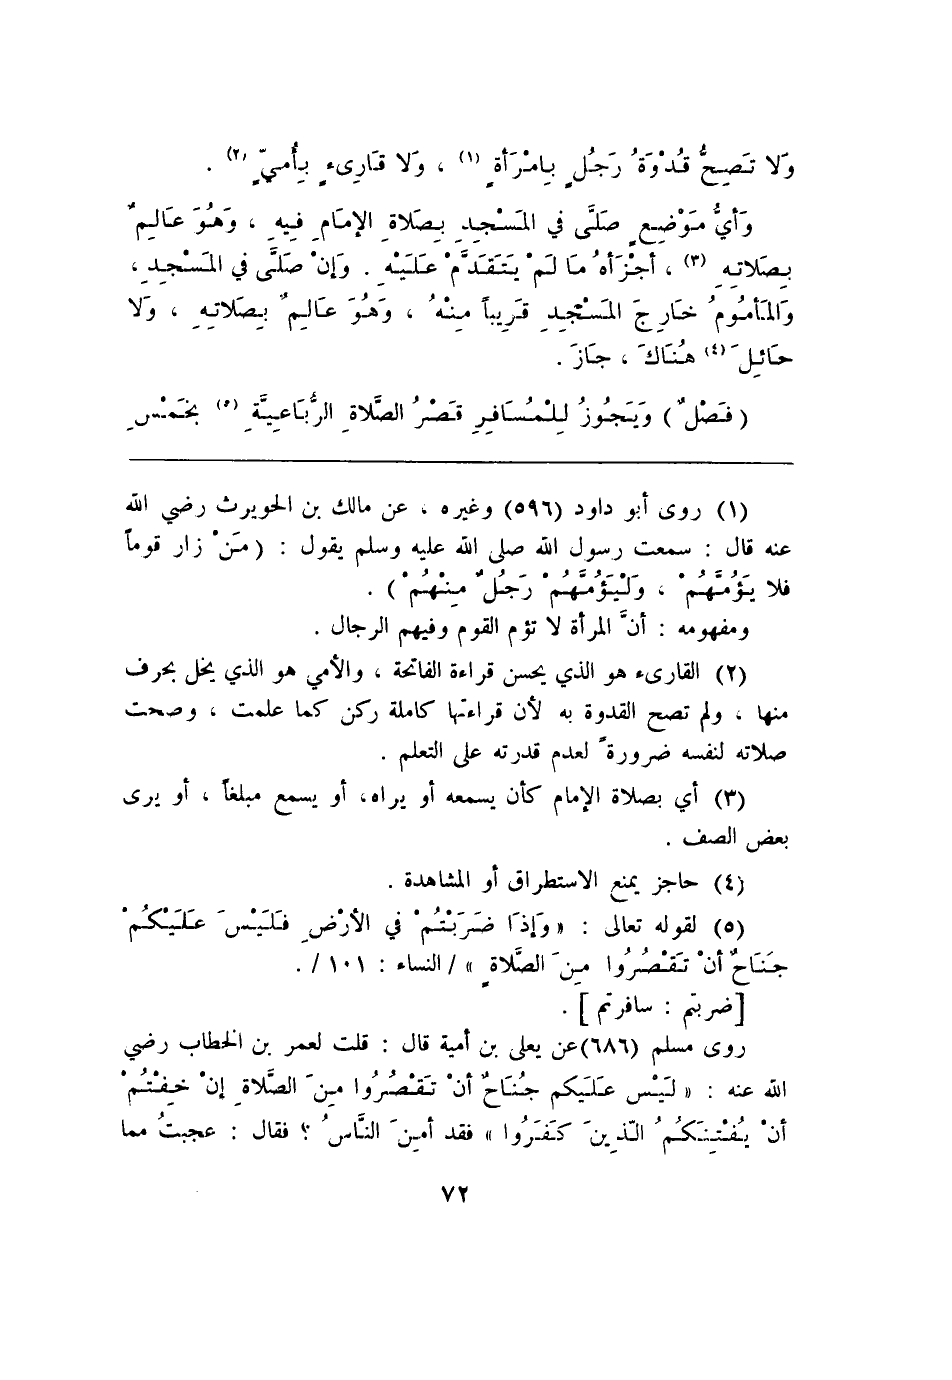 وَلا تَصِحُّ قُدْوَةُ رَجُلٍ بِامْرَأةٍ (١) ، وَلا قَارِىءٍ بِأُمِّيّ (٢) .
وَأيُّ مَوْضِعٍ صَلَّى في المَسْجِدِ بِصَلاةِ الإمَامِ فِيهِ ، وَهُوَ عَالِمٌ
بِصَلاتِهِ (٣) ، أجْزَأهُ مَا لَمْ يَتَقَدَّمْ عَلَيْهِ . وَإنْ صَلَّى في المَسْجِدِ ،
وَالمَأمُومُ خَارِجَ المَسْجِدِ قَرِيباً مِنْهُ ، وَهُوَ عَالِمٌ بِصَلاتِهِ ، وَلا
حَائِلَ (٤) هُنَاكَ ، جَازَ .
( فَصْلٌ ) وَيَجُوزُ لِلْمُسَافِرِ قَصْرُ الصَّلاةِ الرُّبَاعِيَّةِ (٥) بِخَمْسِ
(١) روى أبو داود (٥٩٦) وغيره ، عن مالك بن الحويرث رضي الله
عنه قال : سمعت رسول الله صلى الله عليه وسلم يقول : ( مَنْ زار قوماً
فلا يَؤُمَّهُمْ ، وَلْيَؤُمَّهُمْ رَجُلٌ مِنْهُمْ ) .
ومفهومه : أنَّ المرأة لا تؤم القوم وفيهم الرجال .
(٢) القارىء هو الذي يحسن قراءة الفاتحة ، والأمي هو الذي يخل بحرف
منها ، ولم تصح القدوة به لأن قراءتها كاملة ركن كما علمت ، وصحت
صلاته لنفسه ضرورةً لعدم قدرته على التعلم .
(٣) أي بصلاة الإمام كأن يسمعه أو يراه، أو يسمع مبلغاً ، أو يرى
بعض الصف .
(٤) حاجز يمنع الاستطراق أو المشاهدة .
(٥) لقوله تعالى : « وَإذَا ضَرَبْتُمْ في الأرْضِ فَلَيْسَ عَلَيْكُمْ
جَنَاحٌ أنْ تَقْصُرُوا مِنَ الصَّلاةِ » / النساء : ١٠١ / .
[ ضربتم : سافرتم ] .
روى مسلم (٦٨٦)عن يعلى بن أمية قال : قلت لعمر بن الخطاب رضي
الله عنه : « لَيْس عَلَيكم جُنَاحٌ أنْ تَقْصُرُوا مِنَ الصَّلاةِ إنْ خِفْتُمْ
أنْ يُفْتِنَكُمُ الّذِينَ كَفَرُوا » فقد أمِنَ النَّاسُ ؟ فقال : عجبتُ مما
٧٢